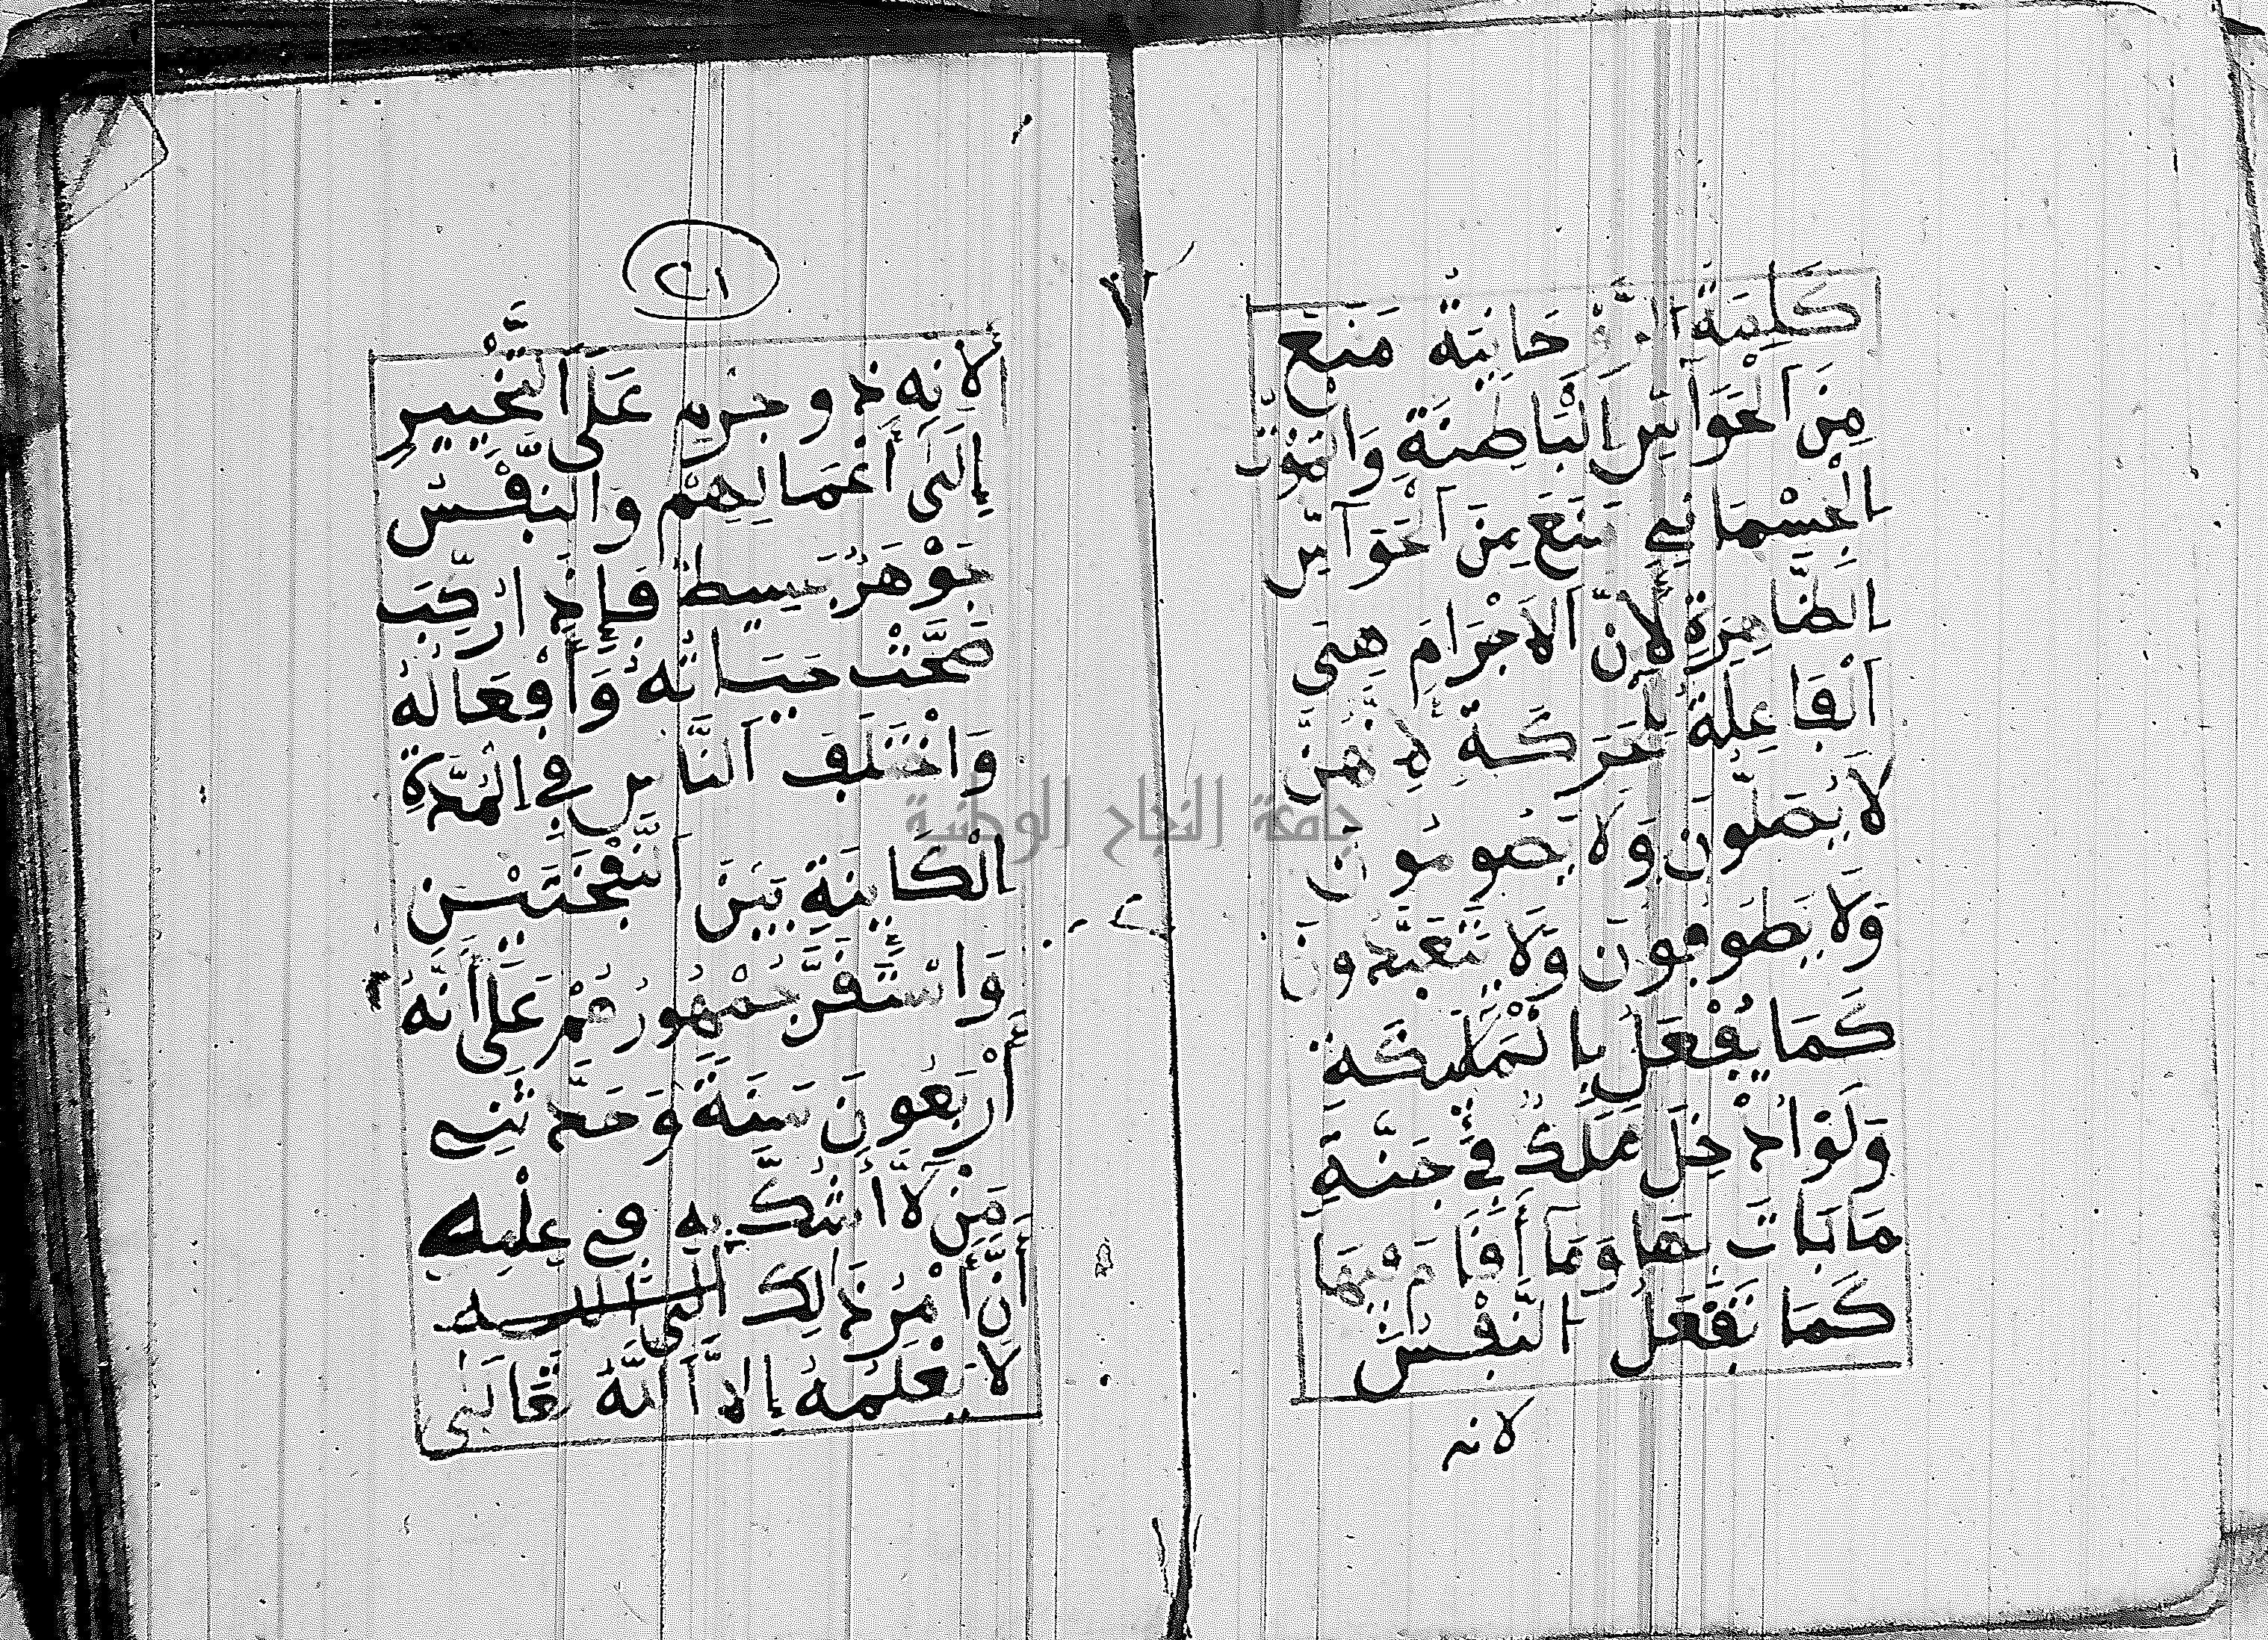 كَلِمَةُ حَانِيَةٌ مَنَعَ
مِنَ الْحَوَاسِ الْبَاطِنَةِ وَالْمَوْتُ
الْجِسْمَانِي مَنَعَ مِنَ الْحَوَاسِّ
الظَّاهِرَةِ لِأَنَّ الْأَجْرَامَ هِيَ
الْفَاعِلَةُ لَأَنَّهُنَّ
لَا يُصَلُّونَ وَلَا يَصُومُونَ
وَلَا يَطُوفُونَ وَلَا يَتَعَبَّدُونَ
كَمَا يُفْعَلُ بِالْمَلَئِكَةِ
وَلَوْ أُدْخِلَ مَلَكٌ فِي جَنَّةِ
مَا بَاتَ بِهَا وَمَا أَقَامَ فِيهَا
كَمَا تَفْعَلُ النَّفْسُ
لانه
٢١
لِأَنَّهُ ذُو جِرْمٍ عَلَى
إِلَى أَعْمَالِهِمْ وَالنَّفْسُ
جَوْهَرٌ بَسِيطٌ فَإِذَا رُكِّبَ
صَحَّتْ حَيَاتُهُ وَأَفْعَالُهُ
وَاخْتَلَفَ النَّاسُ فِي الْمُدَّةِ
الْكَائِنَةِ بَيْنَ النَّفْخَتَيْنِ
وَاسْتَقَرَّ جُمْهُورُهُمْ عَلَى أَنَّهُ
أَرْبَعُونَ سَنَةً وَحَدَّثَنِي
مَنْ لَا أَشُكُّ بِهِ فِي عِلْمِهِ
أَنَّ أَمْرَ ذَلِكَ
لَا يَعْلَمُهُ إِلَّا اللَّهُ تَعَالَى
جامعة النجاح الوطنية